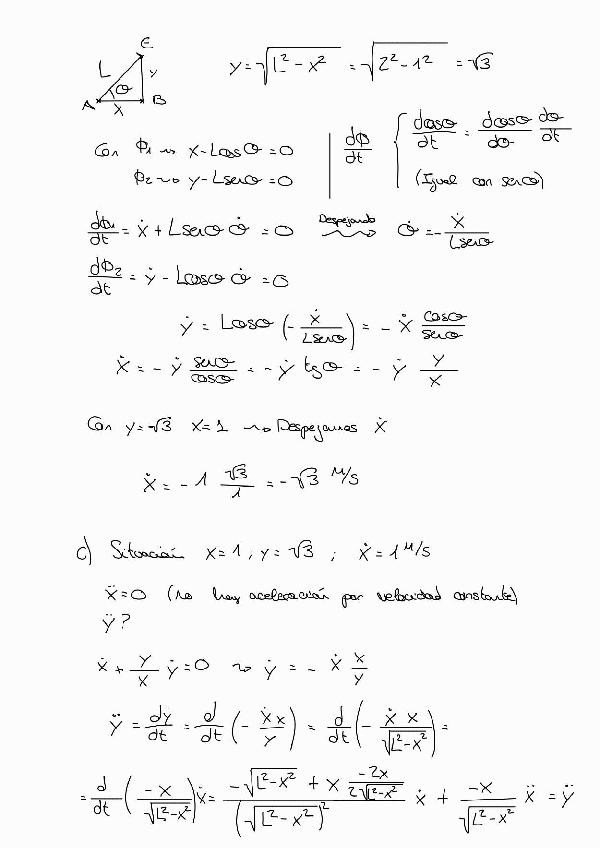 E
L y θ
A x B
y = √(L² - x²) = √(2² - 1²) = √3
Con Φ₁ ⇝ x - L cosθ = 0
Φ₂ ⇝ y - L senθ = 0
dΦ/dt { dcosθ/dt = dcosθ/dθ dθ/dt
(Igual con senθ)
dΦ₁/dt = ẋ + L senθ θ̇ = 0 Despejando ⇝ θ̇ = - ẋ/(L senθ)
dΦ₂/dt = ẏ - L cosθ θ̇ = 0
ẏ = L cosθ (- ẋ/(L senθ)) = - ẋ cosθ/senθ
ẋ = - ẏ senθ/cosθ = - ẏ tgθ = - ẏ y/x
Con y = √3 x = 1 ⇝ Despejamos ẋ
ẋ = - 1 √3/1 = - √3 m/s
c) Situación x = 1, y = √3 ; ẋ = 1 m/s
ẍ = 0 (no hay aceleración por velocidad constante)
ÿ ?
ẋ + y/x ẏ = 0 ⇝ ẏ = - ẋ x/y
ÿ = dẏ/dt = d/dt (- ẋx/y) = d/dt (- ẋ x/√(L² - x²)) =
= d/dt (-x/√(L² - x²)) ẋ = (-√(L² - x²) + x (-2x)/(2√(L² - x²)))/(√(L² - x²))² ẋ + -x/√(L² - x²) ẍ = ÿ